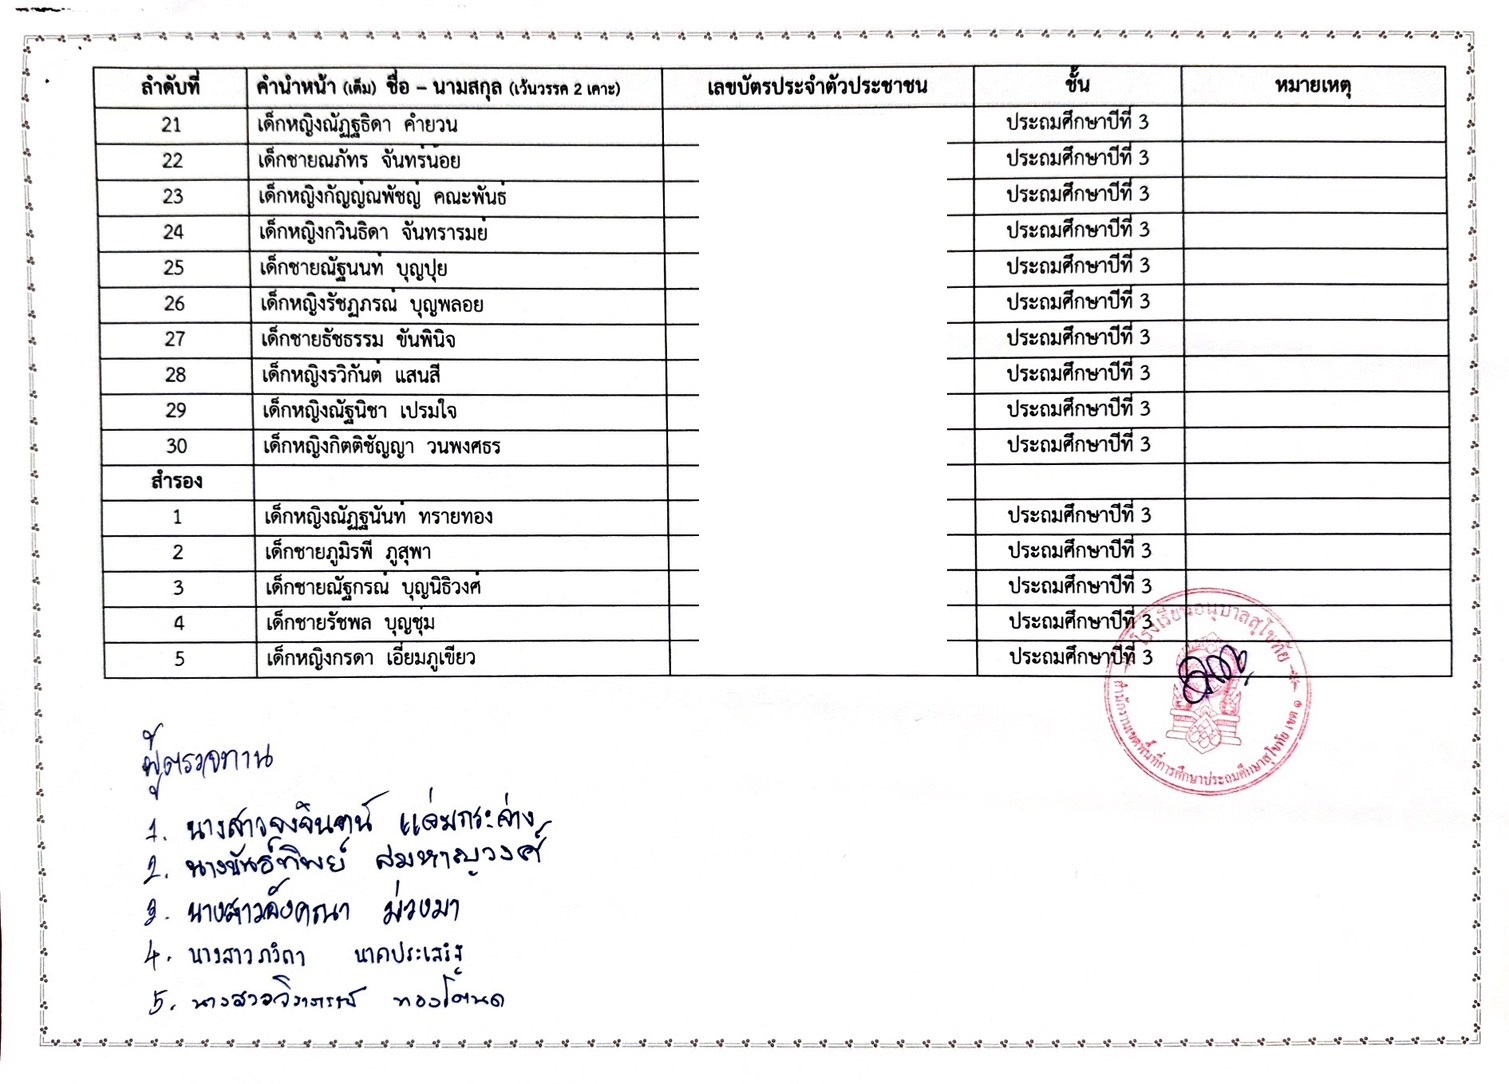 ลำดับที่ คำนำหน้า (เต็ม) ชื่อ – นามสกุล (เว้นวรรค 2 เคาะ) เลขบัตรประจำตัวประชาชน ชั้น หมายเหตุ
21 เด็กหญิงณัฏฐธิดา คำยวน ประถมศึกษาปีที่ 3
22 เด็กชายณภัทร จันทร์น้อย ประถมศึกษาปีที่ 3
23 เด็กหญิงกัญญ์ณพัชญ์ คณะพันธ์ ประถมศึกษาปีที่ 3
24 เด็กหญิงกวินธิดา จันทรารมย์ ประถมศึกษาปีที่ 3
25 เด็กชายณัฐนนท์ บุญปุย ประถมศึกษาปีที่ 3
26 เด็กหญิงรัชฎภรณ์ บุญพลอย ประถมศึกษาปีที่ 3
27 เด็กชายธัชธรรม ขันพินิจ ประถมศึกษาปีที่ 3
28 เด็กหญิงรวิกันต์ แสนสี ประถมศึกษาปีที่ 3
29 เด็กหญิงณัฐนิชา เปรมใจ ประถมศึกษาปีที่ 3
30 เด็กหญิงกิตติชัญญา วนพงศธร ประถมศึกษาปีที่ 3
สำรอง
1 เด็กหญิงณัฏฐนันท์ ทรายทอง ประถมศึกษาปีที่ 3
2 เด็กชายภูมิรพี ภูสุพา ประถมศึกษาปีที่ 3
3 เด็กชายณัฐกรณ์ บุญนิธิวงศ์ ประถมศึกษาปีที่ 3
4 เด็กชายรัชพล บุญชุ่ม ประถมศึกษาปีที่ 3
5 เด็กหญิงกรดา เอี่ยมภูเขียว ประถมศึกษาปีที่ 3
โรงเรียนอนุบาลสุโขทัย
สำนักงานเขตพื้นที่การศึกษาประถมศึกษาสุโขทัย เขต ๑
ผู้ตรวจทาน
1. นางสาวจงจินตน์ แต่มกระจ่าง
2. นางขันธ์ทิพย์ สมหาญวงศ์
3. นางสาวอังคณา ม่วงมา
4. นางสาวภวิตา นาคประเสริฐ
5. นางสาววิภาภรณ์ ทองโตนด